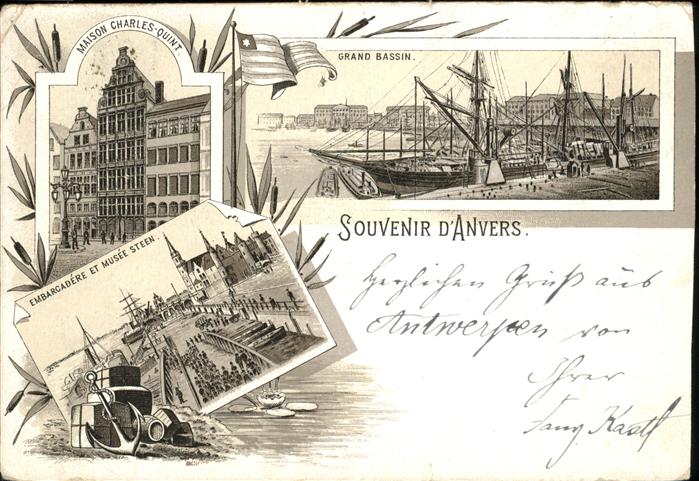 MAISON CHARLES-QUINT.
GRAND BASSIN.
EMBARCADÉRE ET MUSÉE STEEN.
SOUVENIR D'ANVERS.
Herzlichen Gruß aus
Antwerpen von
Ihrer